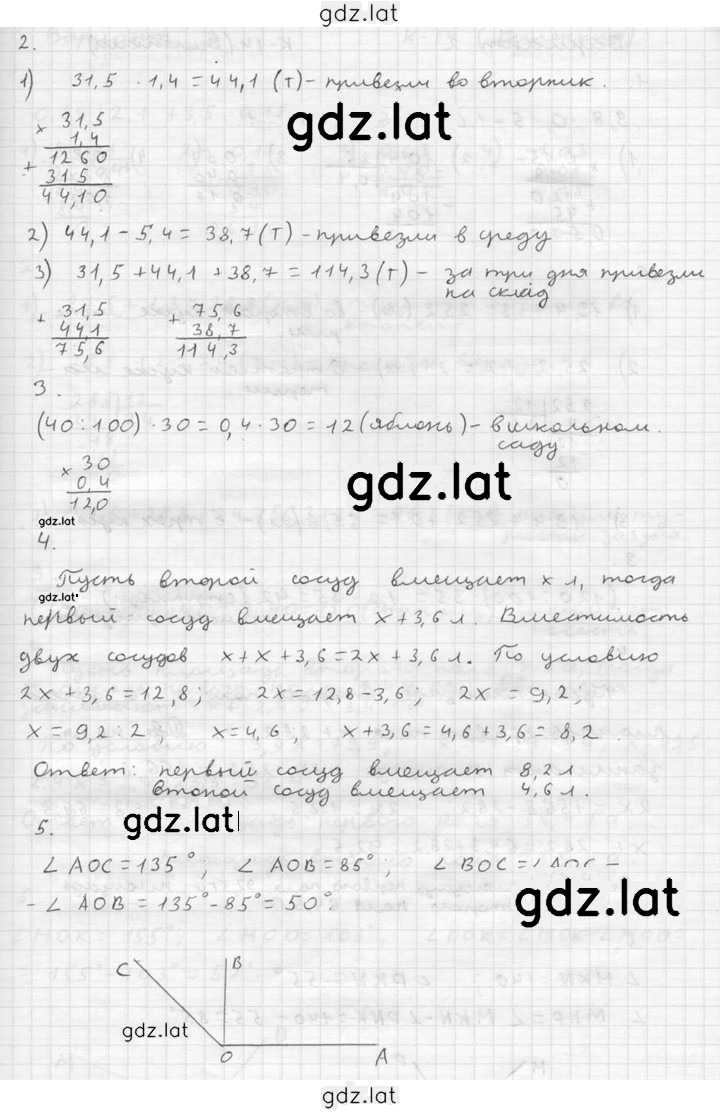 gdz.lat
2.
1) 31,5 · 1,4 = 44,1 (т) - привезли во вторник.
gdz.lat
× 31,5
1,4
+ 1260
315
44,10
2) 44,1 - 5,4 = 38,7 (т) - привезли в среду
3) 31,5 + 44,1 + 38,7 = 114,3 (т) - за три дня привезли
на склад
+ 31,5 + 75,6
44,1 38,7
75,6 114,3
3.
(40 : 100) · 30 = 0,4 · 30 = 12 (яблонь) - в школьном.
саду
× 30
0,4
12,0
gdz.lat
gdz.lat
4.
Пусть второй сосуд вмещает x л, тогда
gdz.lat
первый сосуд вмещает x + 3,6 л. Вместимость
двух сосудов x + x + 3,6 = 2x + 3,6 л. По условию
2x + 3,6 = 12,8; 2x = 12,8 - 3,6; 2x = 9,2;
x = 9,2 : 2; x = 4,6; x + 3,6 = 4,6 + 3,6 = 8,2.
Ответ: первый сосуд вмещает 8,2 л
второй сосуд вмещает 4,6 л.
gdz.lat
5.
∠ AOC = 135°; ∠ AOB = 85°; ∠ BOC = ∠ AOC -
- ∠ AOB = 135° - 85° = 50°.
gdz.lat
C B
gdz.lat
O A
gdz.lat